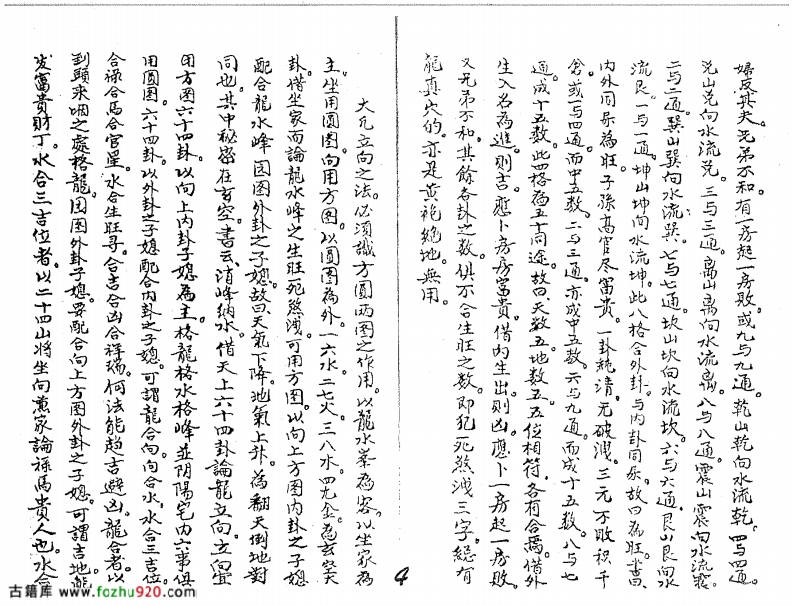 婦反其夫。兄弟不和。有一房起一房敗。或九与九通。乾山乾向水流乾。四与四通。
兌山兌向水流兌。三与三通。离山离向水流离。八与八通。震山震向水流震。
二与二通。巽山巽向水流巽。七与七通。坎山坎向水流坎。六与六通。艮山艮向水
流艮。一与一通。坤山坤向水流坤。此八格合外卦。与内卦同乐。故曰為旺。書曰。
内外同乐為旺。子孫高官尽富貴。一卦純清无破洩。三元不敗积千
倉。或一与四通。而中五数。二与三通。亦成中五数。六与九通。而成十五数。八与七
通。成十五数。此四格為五十同途。故曰。天数五。地数五。五位相符。各有合焉。借外
生入名為進。則吉。應卜一房房富貴。借内生出則凶。應卜一房起一房敗。
又兄弟不和。其餘各卦之数。俱不合生旺之数。即犯死煞洩三字。總有
龍真穴的。亦是黄袍絶地。無用。
大凡立向之法。必須識方圓两图之作用。以龍水峯為客。以坐家為
主。坐用圓图。向用方图。以圓图為外。一六水。二七火。三八木。四九金。為玄空大
卦。借坐家而論龍水峰之生旺死煞洩。可用方图。以向上方图内卦之子媳
配合龍水峰。圓图外卦之子媳。故曰天氣下降。地氣上升。為翻天倒地對
同也。其中秘密在玄空。書云。消峰納水。借天上六十四卦。論龍立向。立向並
用方图六十四卦。以向上内卦子媳為主。格龍格水格峰並阴陽宅内六事俱
用圓图。六十四卦。以外卦之子媳配合内卦之子媳。可謂龍合向。向合水。水合三吉位。
合祿合馬合官星。水合生旺尋。合吉合凶合祥瑞。何法能趋吉避凶。龍合者。以
到頭來咽之處格龍。圓图外卦子媳。要配合向上方图外卦之子媳。可謂吉地。能
发富貴財丁。水合三吉位者。以二十四山將坐向兼家論祿馬貴人也。水合
4
古籍库 www.fozhu920.com